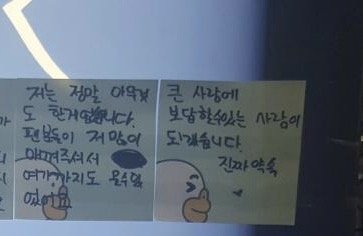 저는 정말 아무것
도 한게 없습니다.
팬분들이 저 많이
아껴주셔서
여기까지도 올수있
었어요
큰 사랑에
보답할수있는 사람이
되겠습니다.
진짜약속